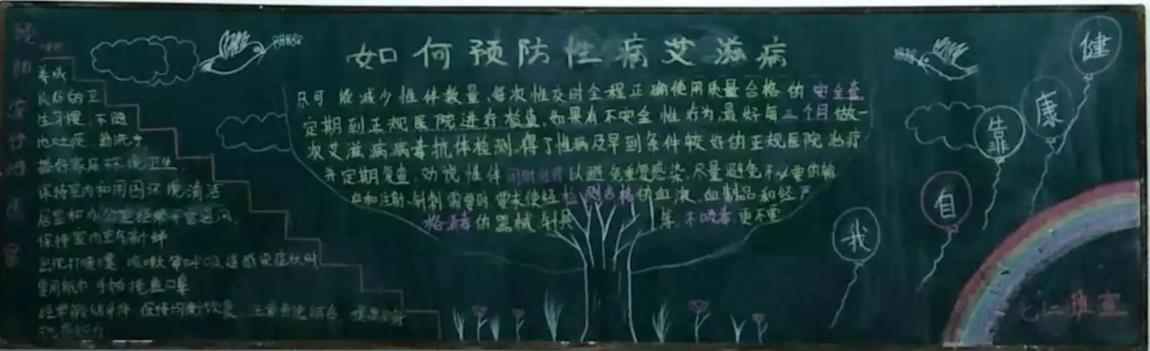 如何预防性病艾滋病
只可能减少性伴数量、每次性交时全程正确使用质量合格的安全套
定期到正规医院进行检查,如果有不安全性行为,最好每三个月做一
次艾滋病病毒抗体检测,得了性病及早到条件较好的正规医院治疗
并定期复查,劝说性伴同时治疗以避免重复感染,尽量避免不必要的输
血和注射、针刺需要时要求使经检测合格的血液、血制品和经严
格消毒的器械、针具等,不吸毒,更不要
养成
良好的卫
生习惯,不随
地吐痰,勤洗手
搞好家庭环境卫生
保持室内和周围环境清洁
居室和办公室经常开窗通风
保持室内空气新鲜
出现打喷嚏、咳嗽等呼吸道感染症状时
要用纸巾、手帕掩盖口鼻
我
自
靠
康
健
七二班宣